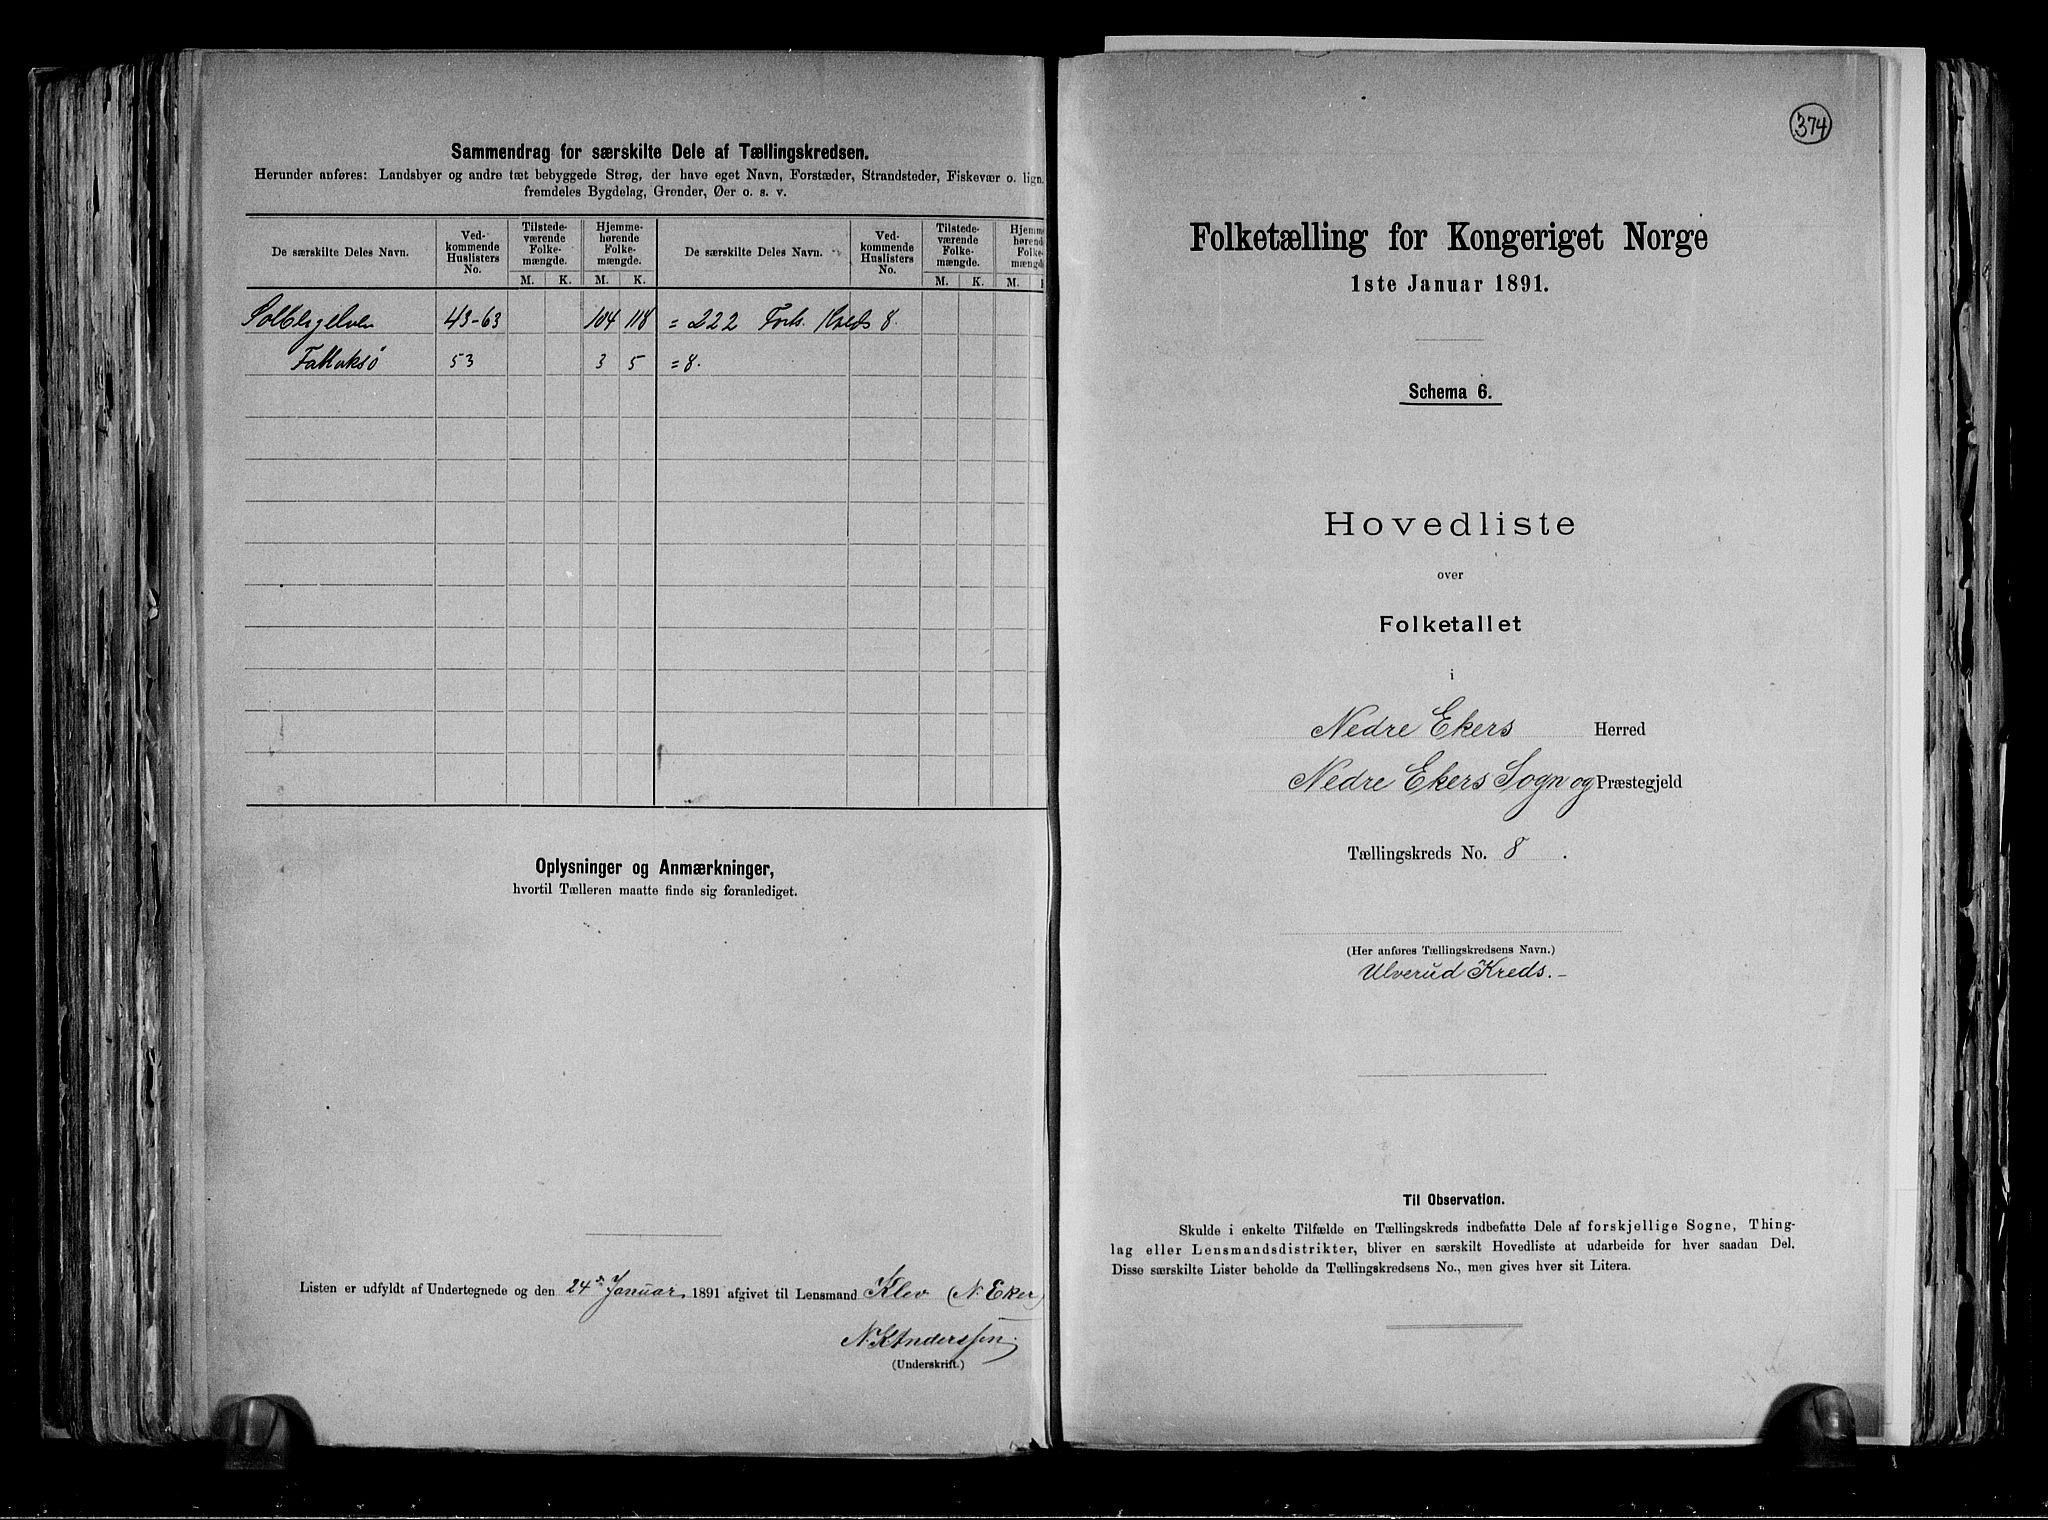 Sammendrag for særskilte Dele af Tællingskredsen.
Herunder anføres: Landsbyer og andre tæt bebyggede Strøg, der have eget Navn, Forstæder, Strandsteder, Fiskevær o. lign.
fremdeles Bygdelag, Grender, Øer o. s. v.
De særskilte Deles Navn.
Ved-
kommende
Huslisters
No.
Tilstede-
værende
Folke-
mængde.
Hjemme-
hørende
Folke-
mængde.
De særskilte Deles Navn.
Ved-
kommende
Huslisters
No.
Tilstede-
værende
Folke-
mængde.
Hjemme-
hørende
Folke-
mængde
M. K. M. K. M. K. M. K
43-63 104 118 = 222 Forts. Kreds 8.
53 3 5 = 8.
Oplysninger og Anmærkninger,
hvortil Tælleren maatte finde sig foranlediget.
Listen er udfyldt af Undertegnede og den 24de Januar 1891 afgivet til Lensmand Klev (N. Eker)
N. K. Anderssen.
(Underskrift.)
374
Folketælling for Kongeriget Norge
1ste Januar 1891.
Schema 6.
Hovedliste
over
Folketallet
i
Nedre Ekers Herred
Nedre Ekers Sogn og Præstegjeld
Tællingskreds No. 8.
(Her anføres Tællingskredsens Navn.)
Ulverud Kreds.-
Til Observation.
Skulde i enkelte Tilfælde en Tællingskreds indbefatte Dele af forskjellige Sogne, Thing-
lag eller Lensmandsdistrikter, bliver en særskilt Hovedliste at udarbeide for hver saadan Del.
Disse særskilte Lister beholde da Tællingskredsens No., men gives hver sit Litera.